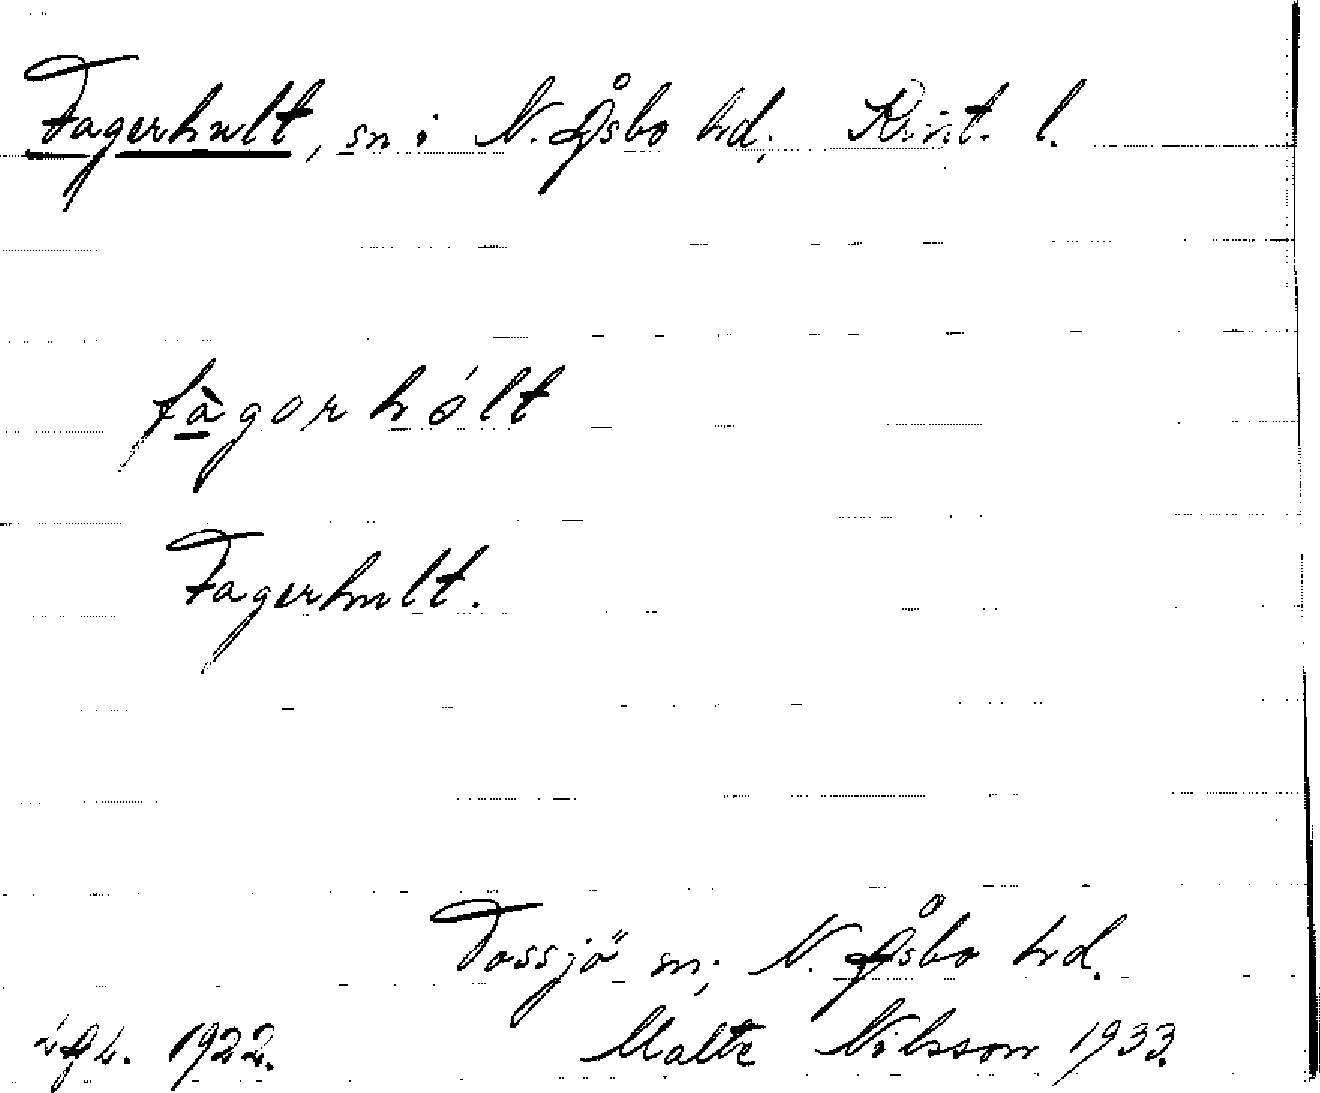 Fagerhult, sn i N. Åsbo hd; Krist. l.
fàgorhólt
Fagerhult.
Tossjö sn; N. Åsbo hd.
1922. Malte Nilsson 1933.